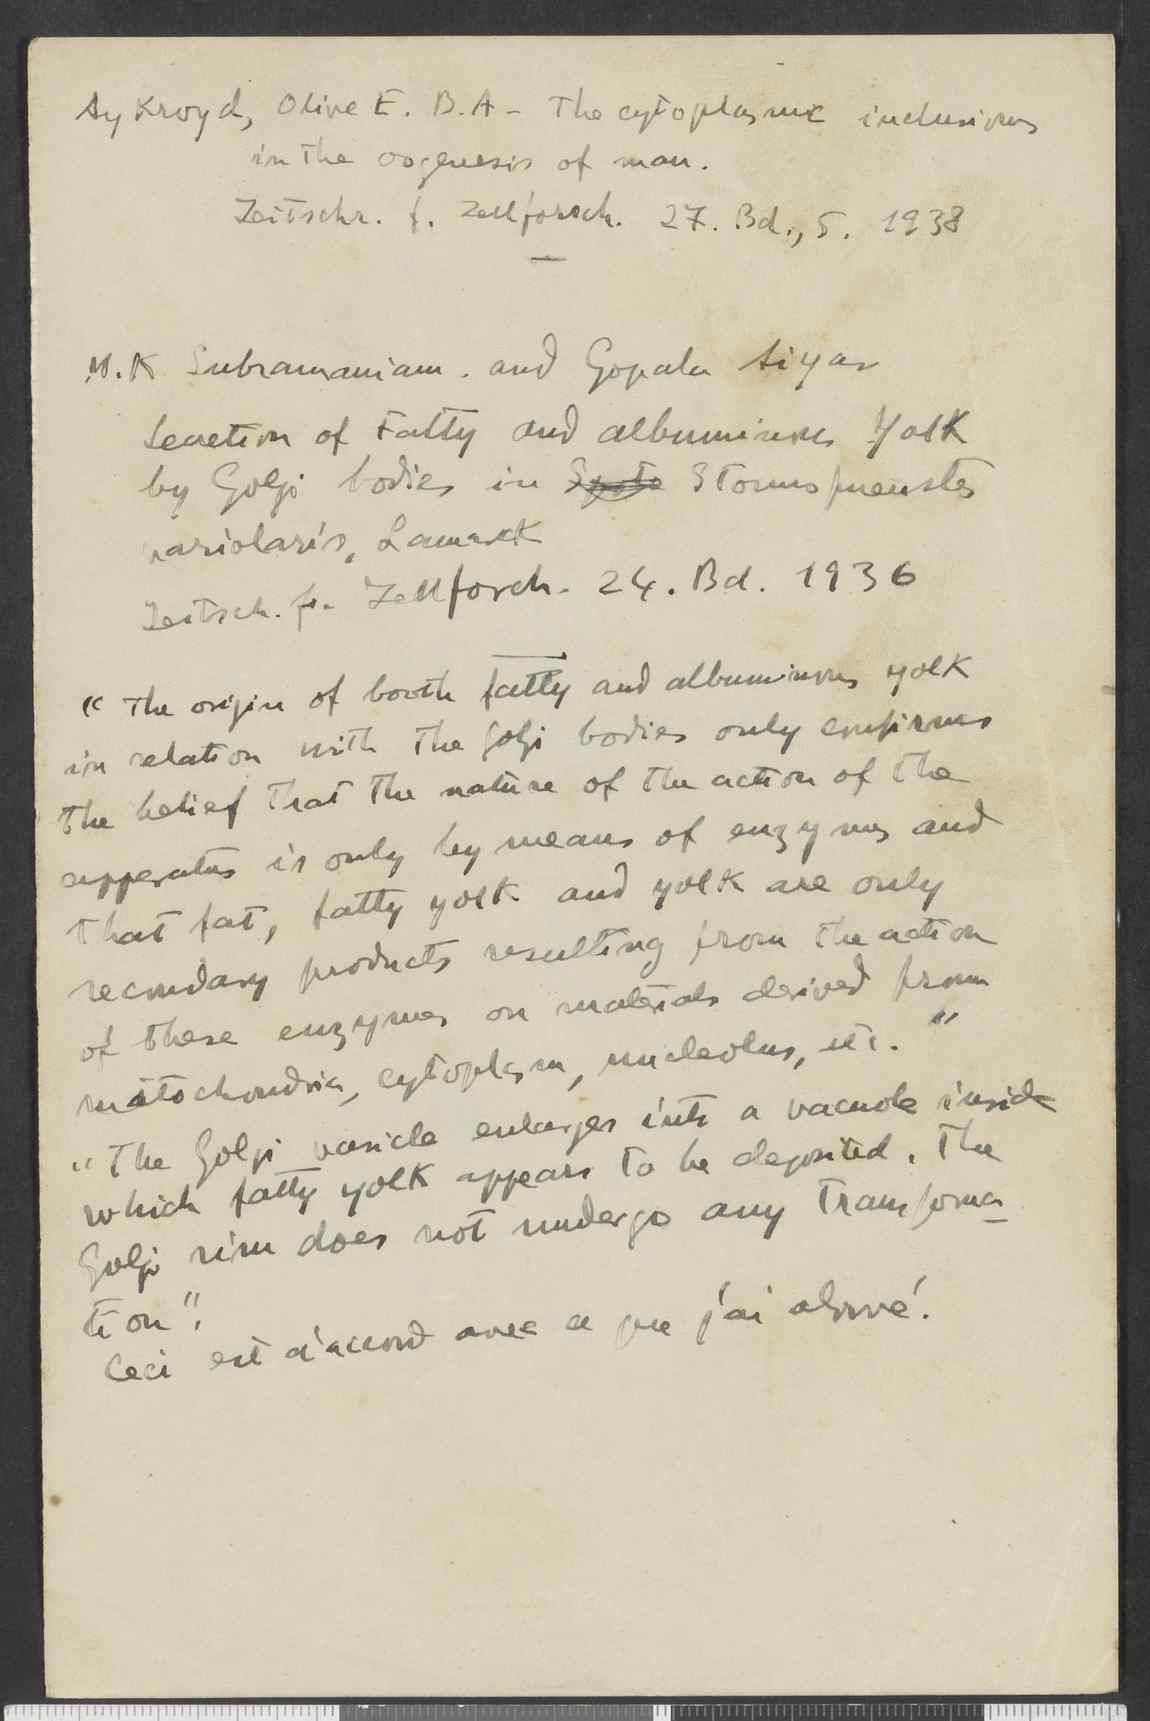 Aykroyd, Olive E. B.A - The cytoplasmic inclusions
in the oogenesis of man.
Zeitschr. f. Zellforsch. 27. Bd., 5. 1938
M.K Subramaniam. and Gopala Aiyar
Secretion of Fatty and albuminous Yolk
by Golgi bodies in Stomopneustes
variolaris, Lamarck
Zeitsch. f. Zellforch. 24. Bd. 1936
" The origin of booth fatty and albuminous yolk
in relation with the Golgi bodies only confirms
the belief that the nature of the action of the
apperatus is only by means of enzymes and
that fat, fatty yolk and yolk are only
secondary products resulting from the action
of these enzymes on materials derived from
mitochondria, cytoplasm, nucleolus, etc. "
" The Golgi vesicle enlarges into a vacuole inside
which fatty yolk appears to be deposited. The
Golgi rim does not undergo any transforma-
tion".
Ceci est d'accord avec ce que j'ai observé.